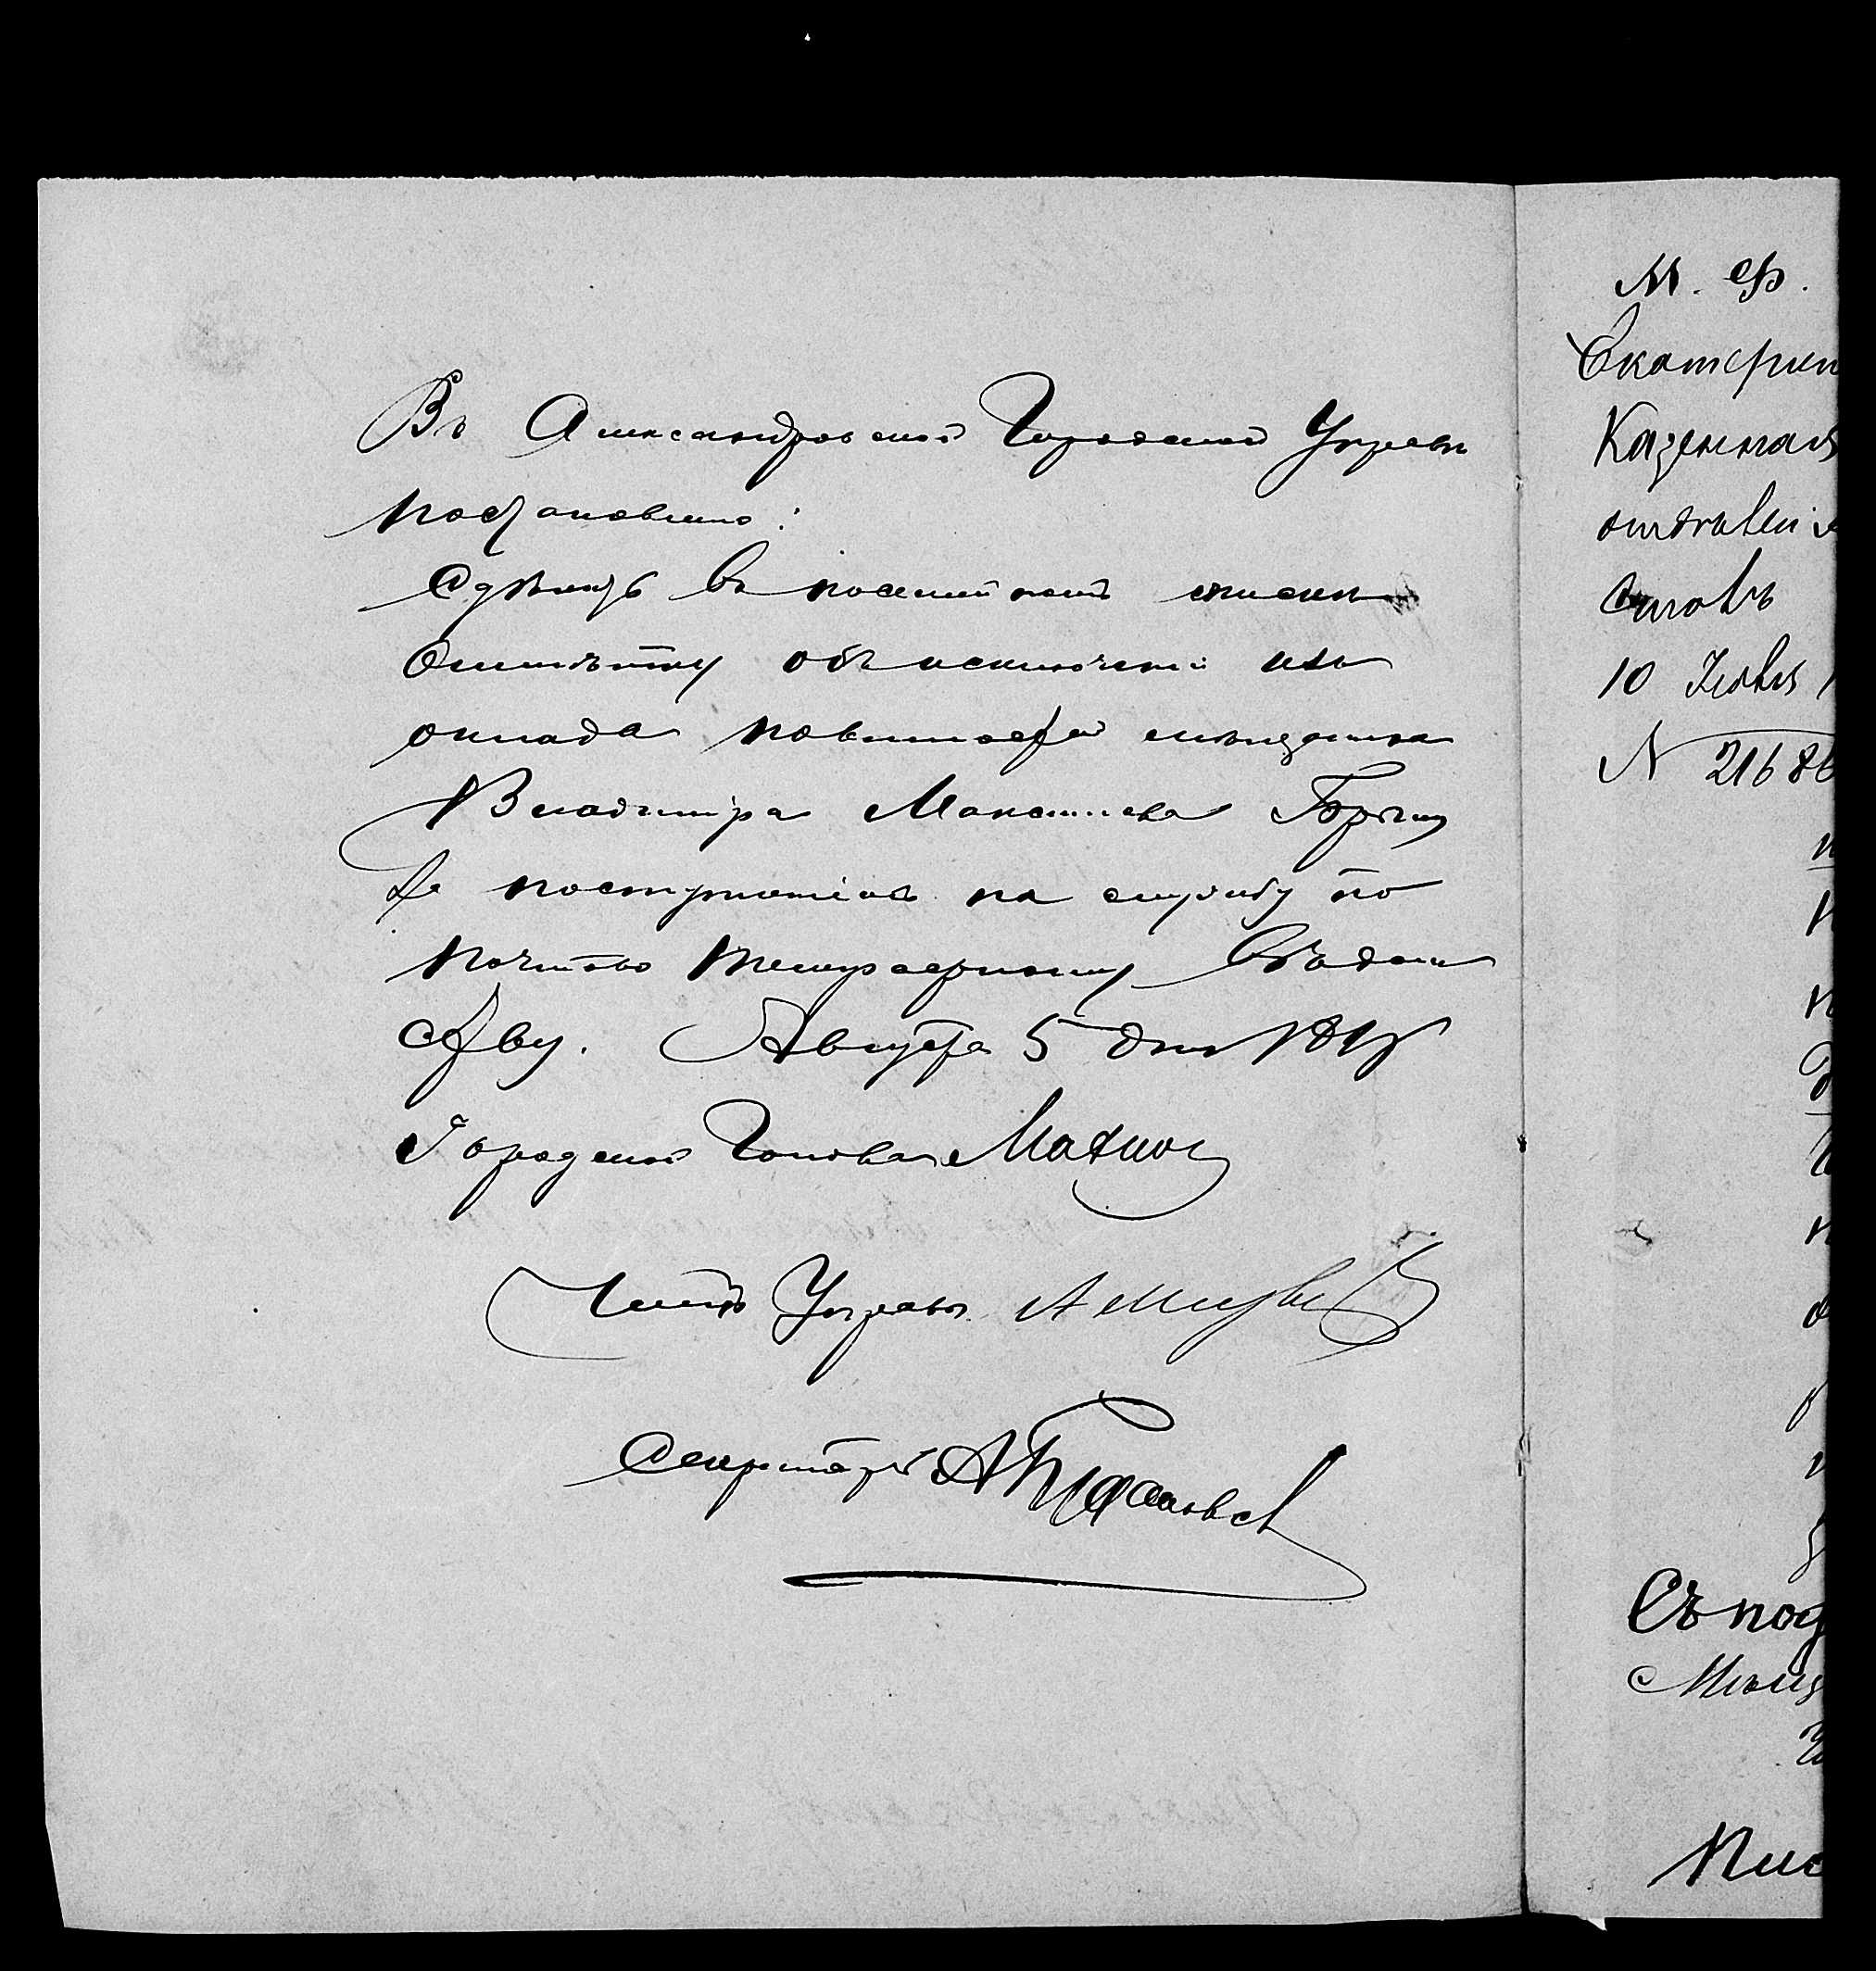 Въ Александровской Городской Управѣ
постановлено:
Сдѣлать въ посемейномъ спискѣ
отмѣтку объ исключеніи изъ
оклада повинностей мѣщанина
Владиміра Максимова
за поступленіемъ на службу по
почтово телеграфному вѣдом
ству. Августа 5 дня
Городской Голова
Членъ Управы
Секретарь А
М. Ф.
Екатерин
Казенная
отдѣленіе
Столъ
10 Іюля
N 2168
Съ под
Мѣщ
Пис